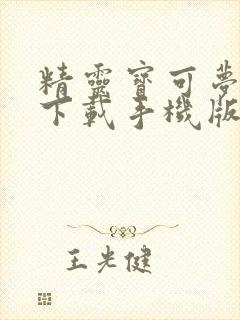 精靈寶可夢
下載手機版
王光健